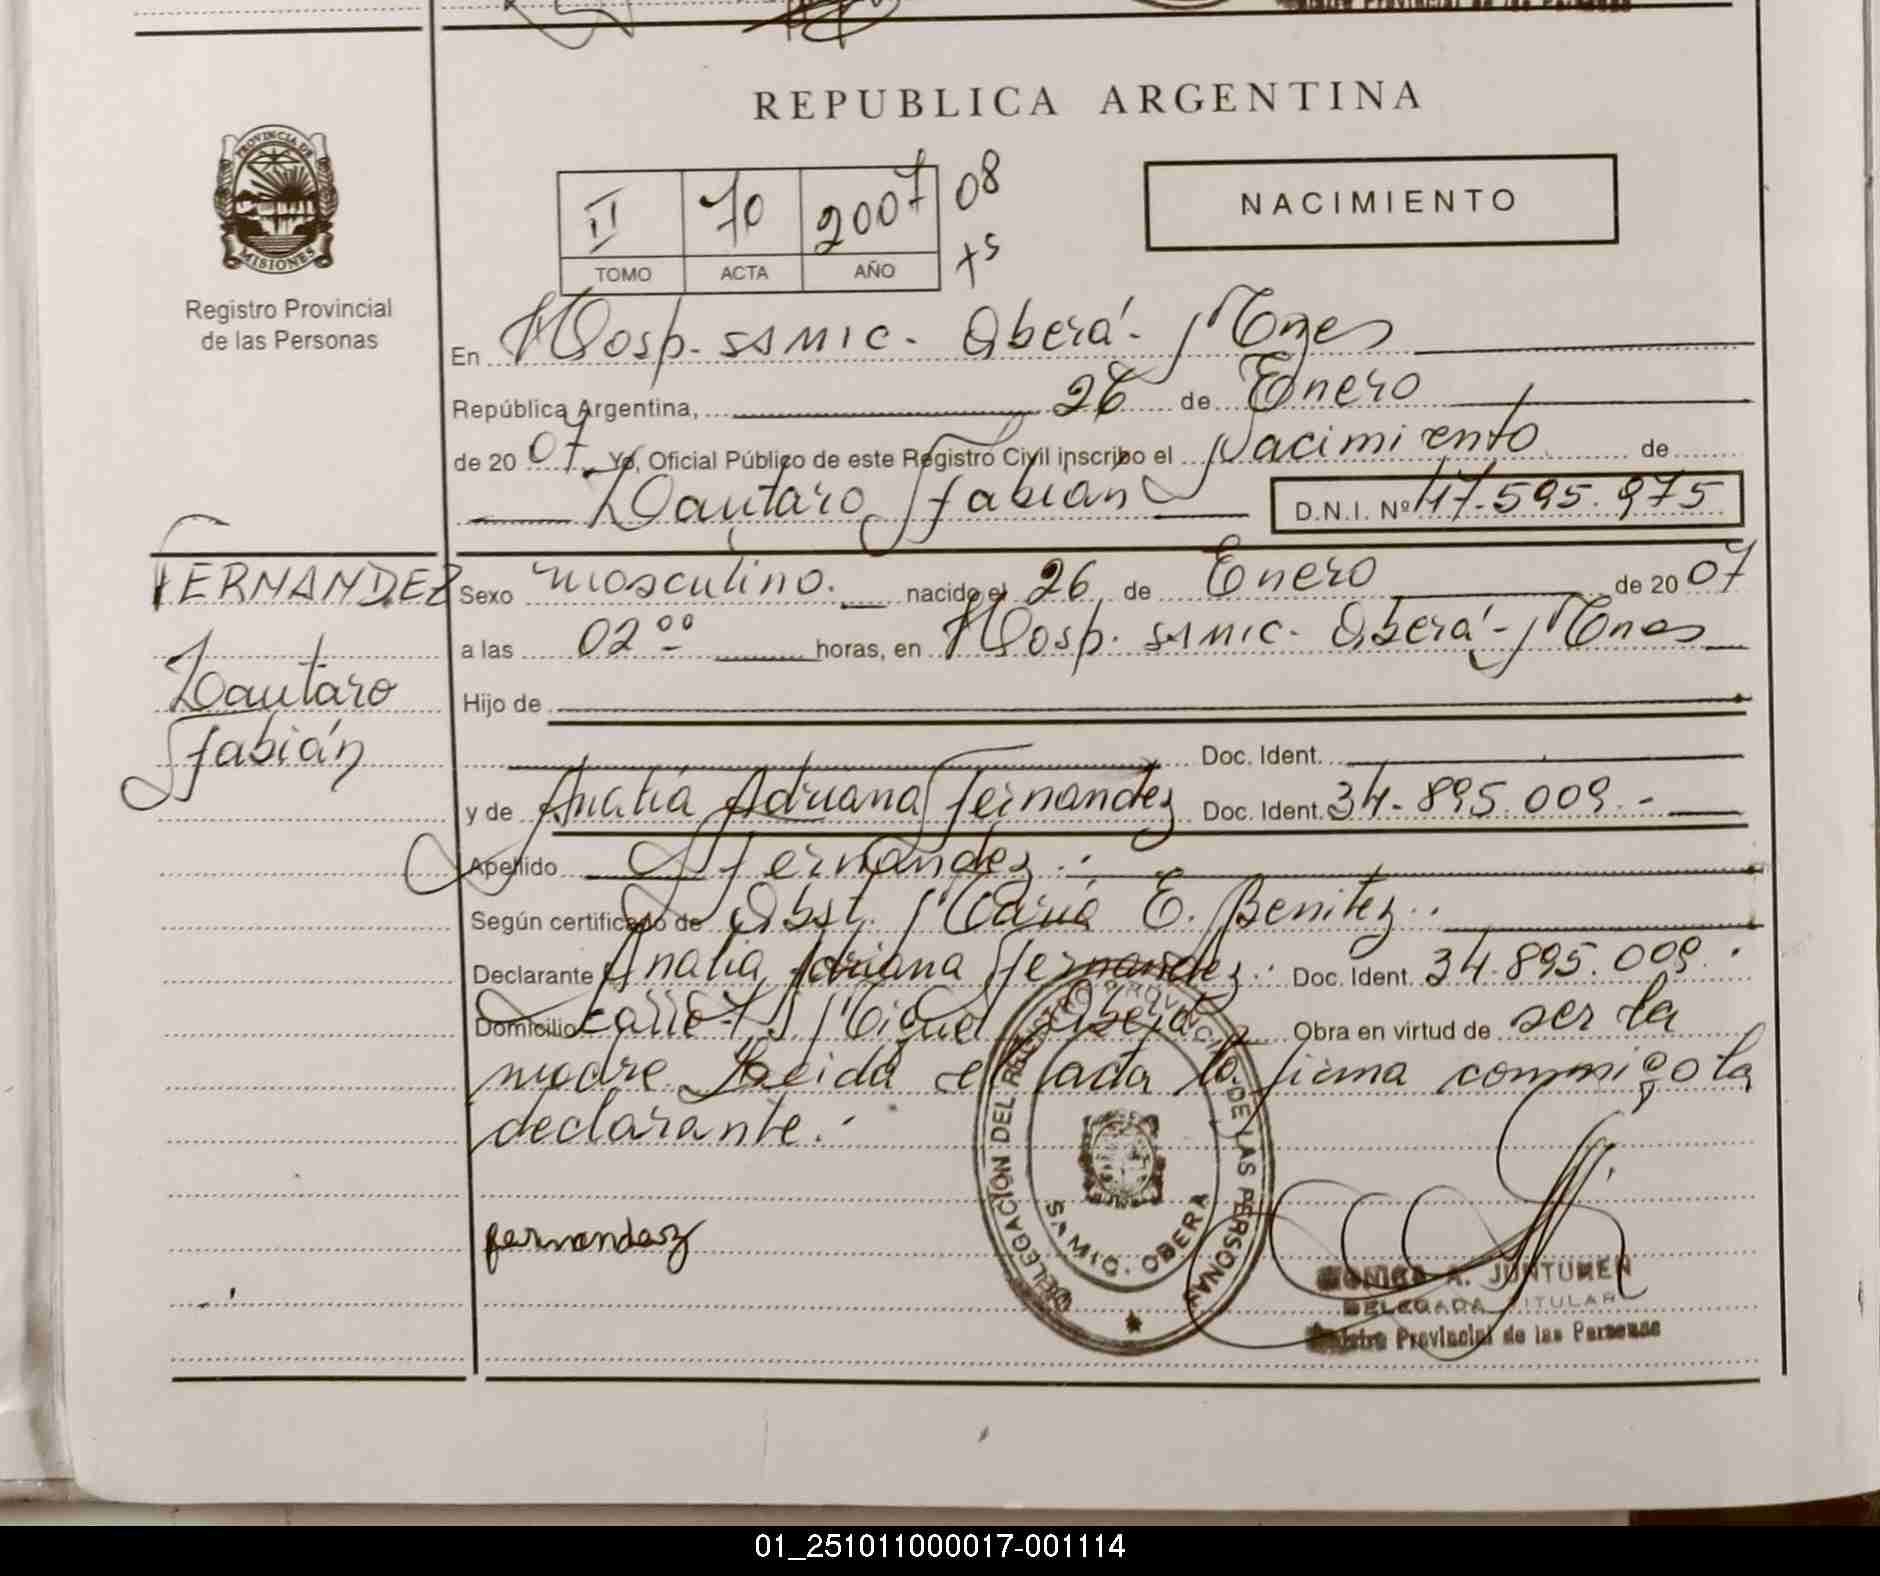 REPUBLICA ARGENTINA
PROVINCIA DE
MISIONES
Registro Provincial
de las Personas
II 70 2007 08
TOMO ACTA AÑO
NACIMIENTO
En Hosp. SAMIC. Oberá - Mnes
República Argentina, 26 de Enero
de 2007 Yo, Oficial Público de este Registro Civil inscribo el Nacimiento de
Lautaro Fabián D.N.I. Nº 47.595.975
FERNANDEZ
Lautaro
Fabián
Sexo masculino. nacido el 26 de Enero de 2007
a las 02 00 horas, en Hosp. SAMIC. Oberá - Mnes
Hijo de
Doc. Ident.
y de Analía Adriana Fernandez Doc. Ident. 34.895.009.-
Apellido Fernandez.
Según certificado de Obst. María E. Benitez.
Declarante Analía Adriana Fernandez. Doc. Ident. 34.895.009.
Domicilio calle Miguel Oberá Obra en virtud de ser la
madre Leida el acta la firma conmigo la
declarante.
fernandez
DELEGACION DEL REGISTRO PROVINCIAL DE LAS PERSONAS
SAMIC. OBERA
MONICA A. JUNTUNEN
DELEGADA TITULAR
Registro Provincial de las Personas
01_251011000017-001114